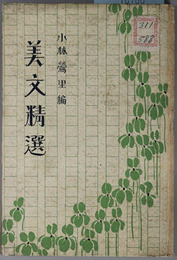 小林鶯里編
美文精選
311
588